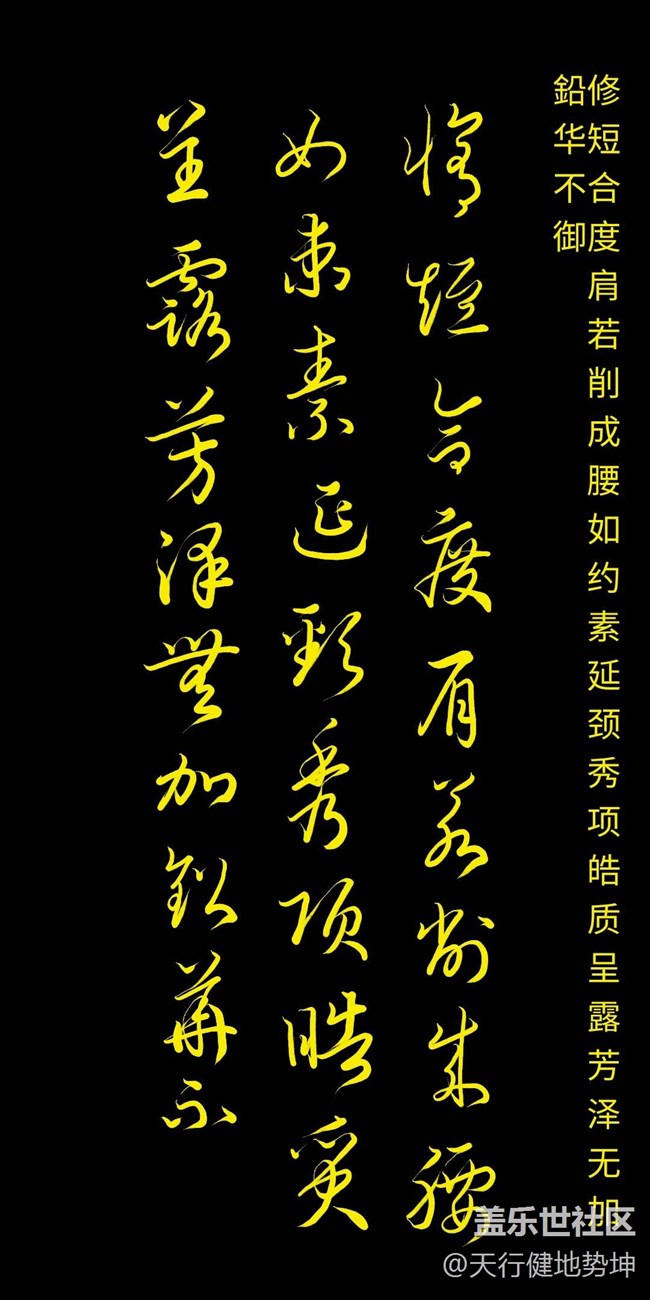 修短合度肩若削成腰如约素延颈秀项皓质呈露芳泽无加
鉛华不御
修短合度肩若削成腰
如束素延颈秀项皓质
呈露芳泽無加鉛華不
盖乐世社区
@天行健地势坤